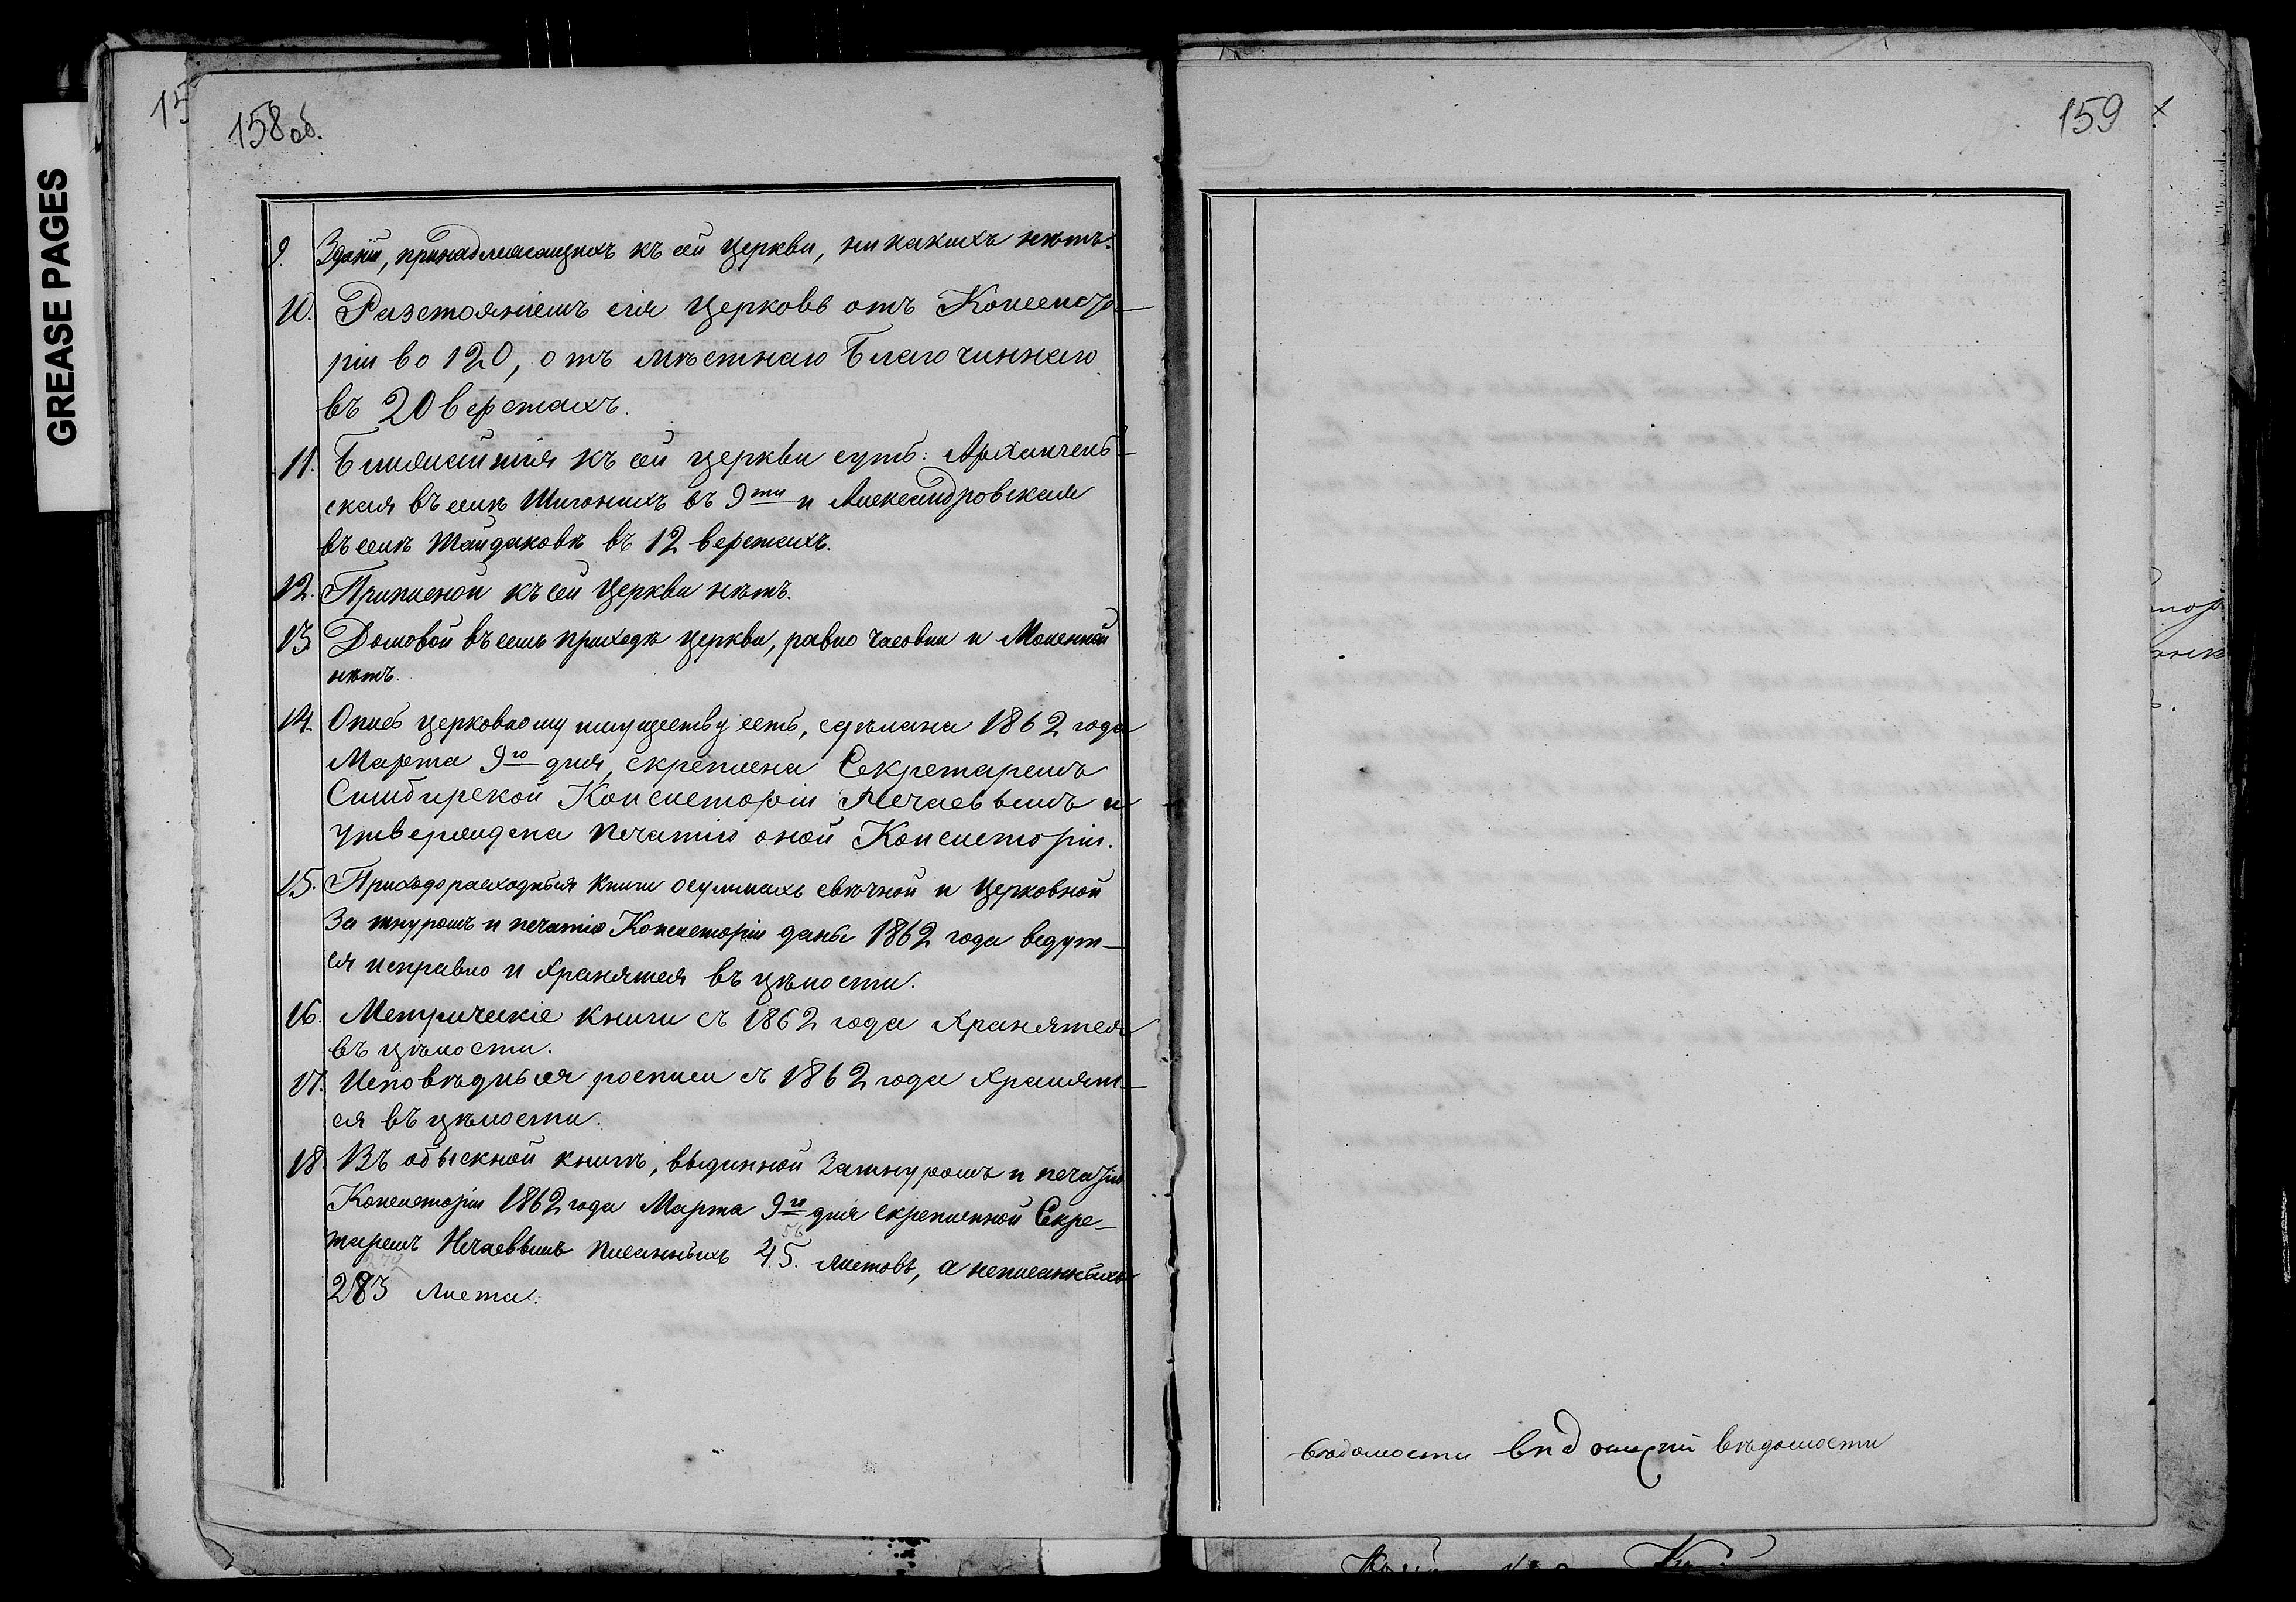 GREASE PAGES
15
158 об.
9. Зданій, принадлежащихъ къ сей церкви, никакихъ нѣтъ.
10. Разстояніемъ сія церковь отъ Консисто-
ріи во 120, отъ мѣстнаго Благочиннаго
въ 20 верстахъ.
11. Ближайшія къ сей церкви суть: Архангель-
ская въ селѣ Шигонахъ въ 9ти и Александровская
въ селѣ Тайдаковѣ въ 12 верстахъ.
12. Приписной къ сей Церкви нѣтъ.
13. Домовой въ семъ приходѣ церкви, равно часовни и Моленной
нѣтъ.
14. Опись церковному имуществу есть, сдѣлана 1862 года
Марта 9го дня, скрѣплена Секретаремъ
Симбирской Консисторіи Нечаевымъ и
утверждена печатію оной Консисторіи.
15. Приходорасходныя книги о суммахъ свѣчной и Церковной
За шнуромъ и печатію Консисторіи даны 1862 года ведут-
ся исправно и хранятся въ цѣлости.
16. Метрическіе книги съ 1862 года хранятся
въ цѣлости.
17. Исповѣдныя росписи съ 1862 года хранят-
ся въ цѣлости.
18. Въ обыскной книгѣ, выданной За шнуромъ и печатію
Консисторіи 1862 года Марта 9го дня скрѣпленной Секре-
56
таремъ Нечаевымъ писанныхъ 45. листовъ, а неписанныхъ
283 листа.
159
вѣдомости вѣдомости